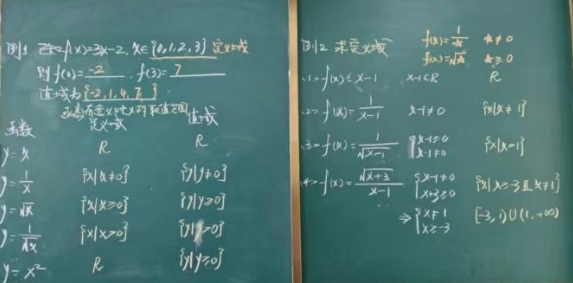 例1. 已知f(x)=3x-2, x∈{0,1,2,3} 定义域
则f(0)=-2, f(3)=7
值域为{-2,1,4,7}
函数 定义域 值域
y=x R R
y=1/x {x|x≠0} {y|y≠0}
y=√x {x|x≥0} {y|y≥0}
y=1/√x {x|x>0} {y|y>0}
y=x² R {y|y≥0}
例2. 求定义域 f(x)=1/x x≠0
f(x)=√x x≥0
<1> f(x)=x-1 x-1∈R R
<2> f(x)=1/(x-1) x-1≠0 {x|x≠1}
<3> f(x)=1/√(x-1) {x-1≥0 x-1≠0
<4> f(x)=√(x+3)/(x-1) {x-1≠0 x+3≥0 {x|x≥-3且x≠1}
⇒ {x≠1 x≥-3 [-3,1)∪(1,+∞)